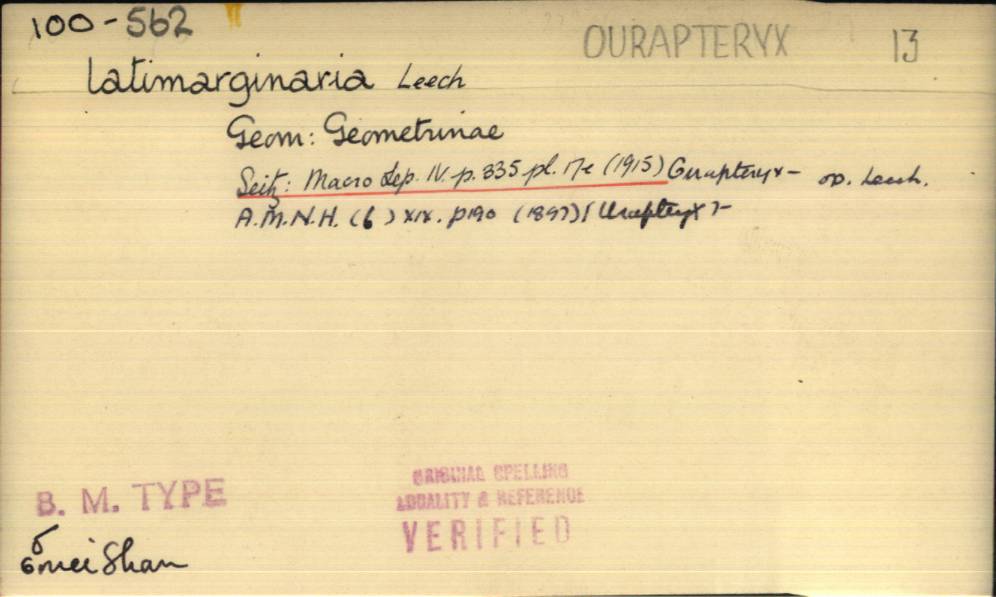 100-562
OURAPTERYX 13
latimarginaria Leech
Geom: Geometrinae
Seitz: Macro Lep. IV. p. 335 pl. 17e (1915) Ourapteryx - op. Leech.
A.M.N.H. (6) XIX. p190 (1897) [Urapteryx]-
B. M. TYPE
ORIGINAL SPELLING
LOCALITY & REFERENCE
VERIFIED
Omei Shan